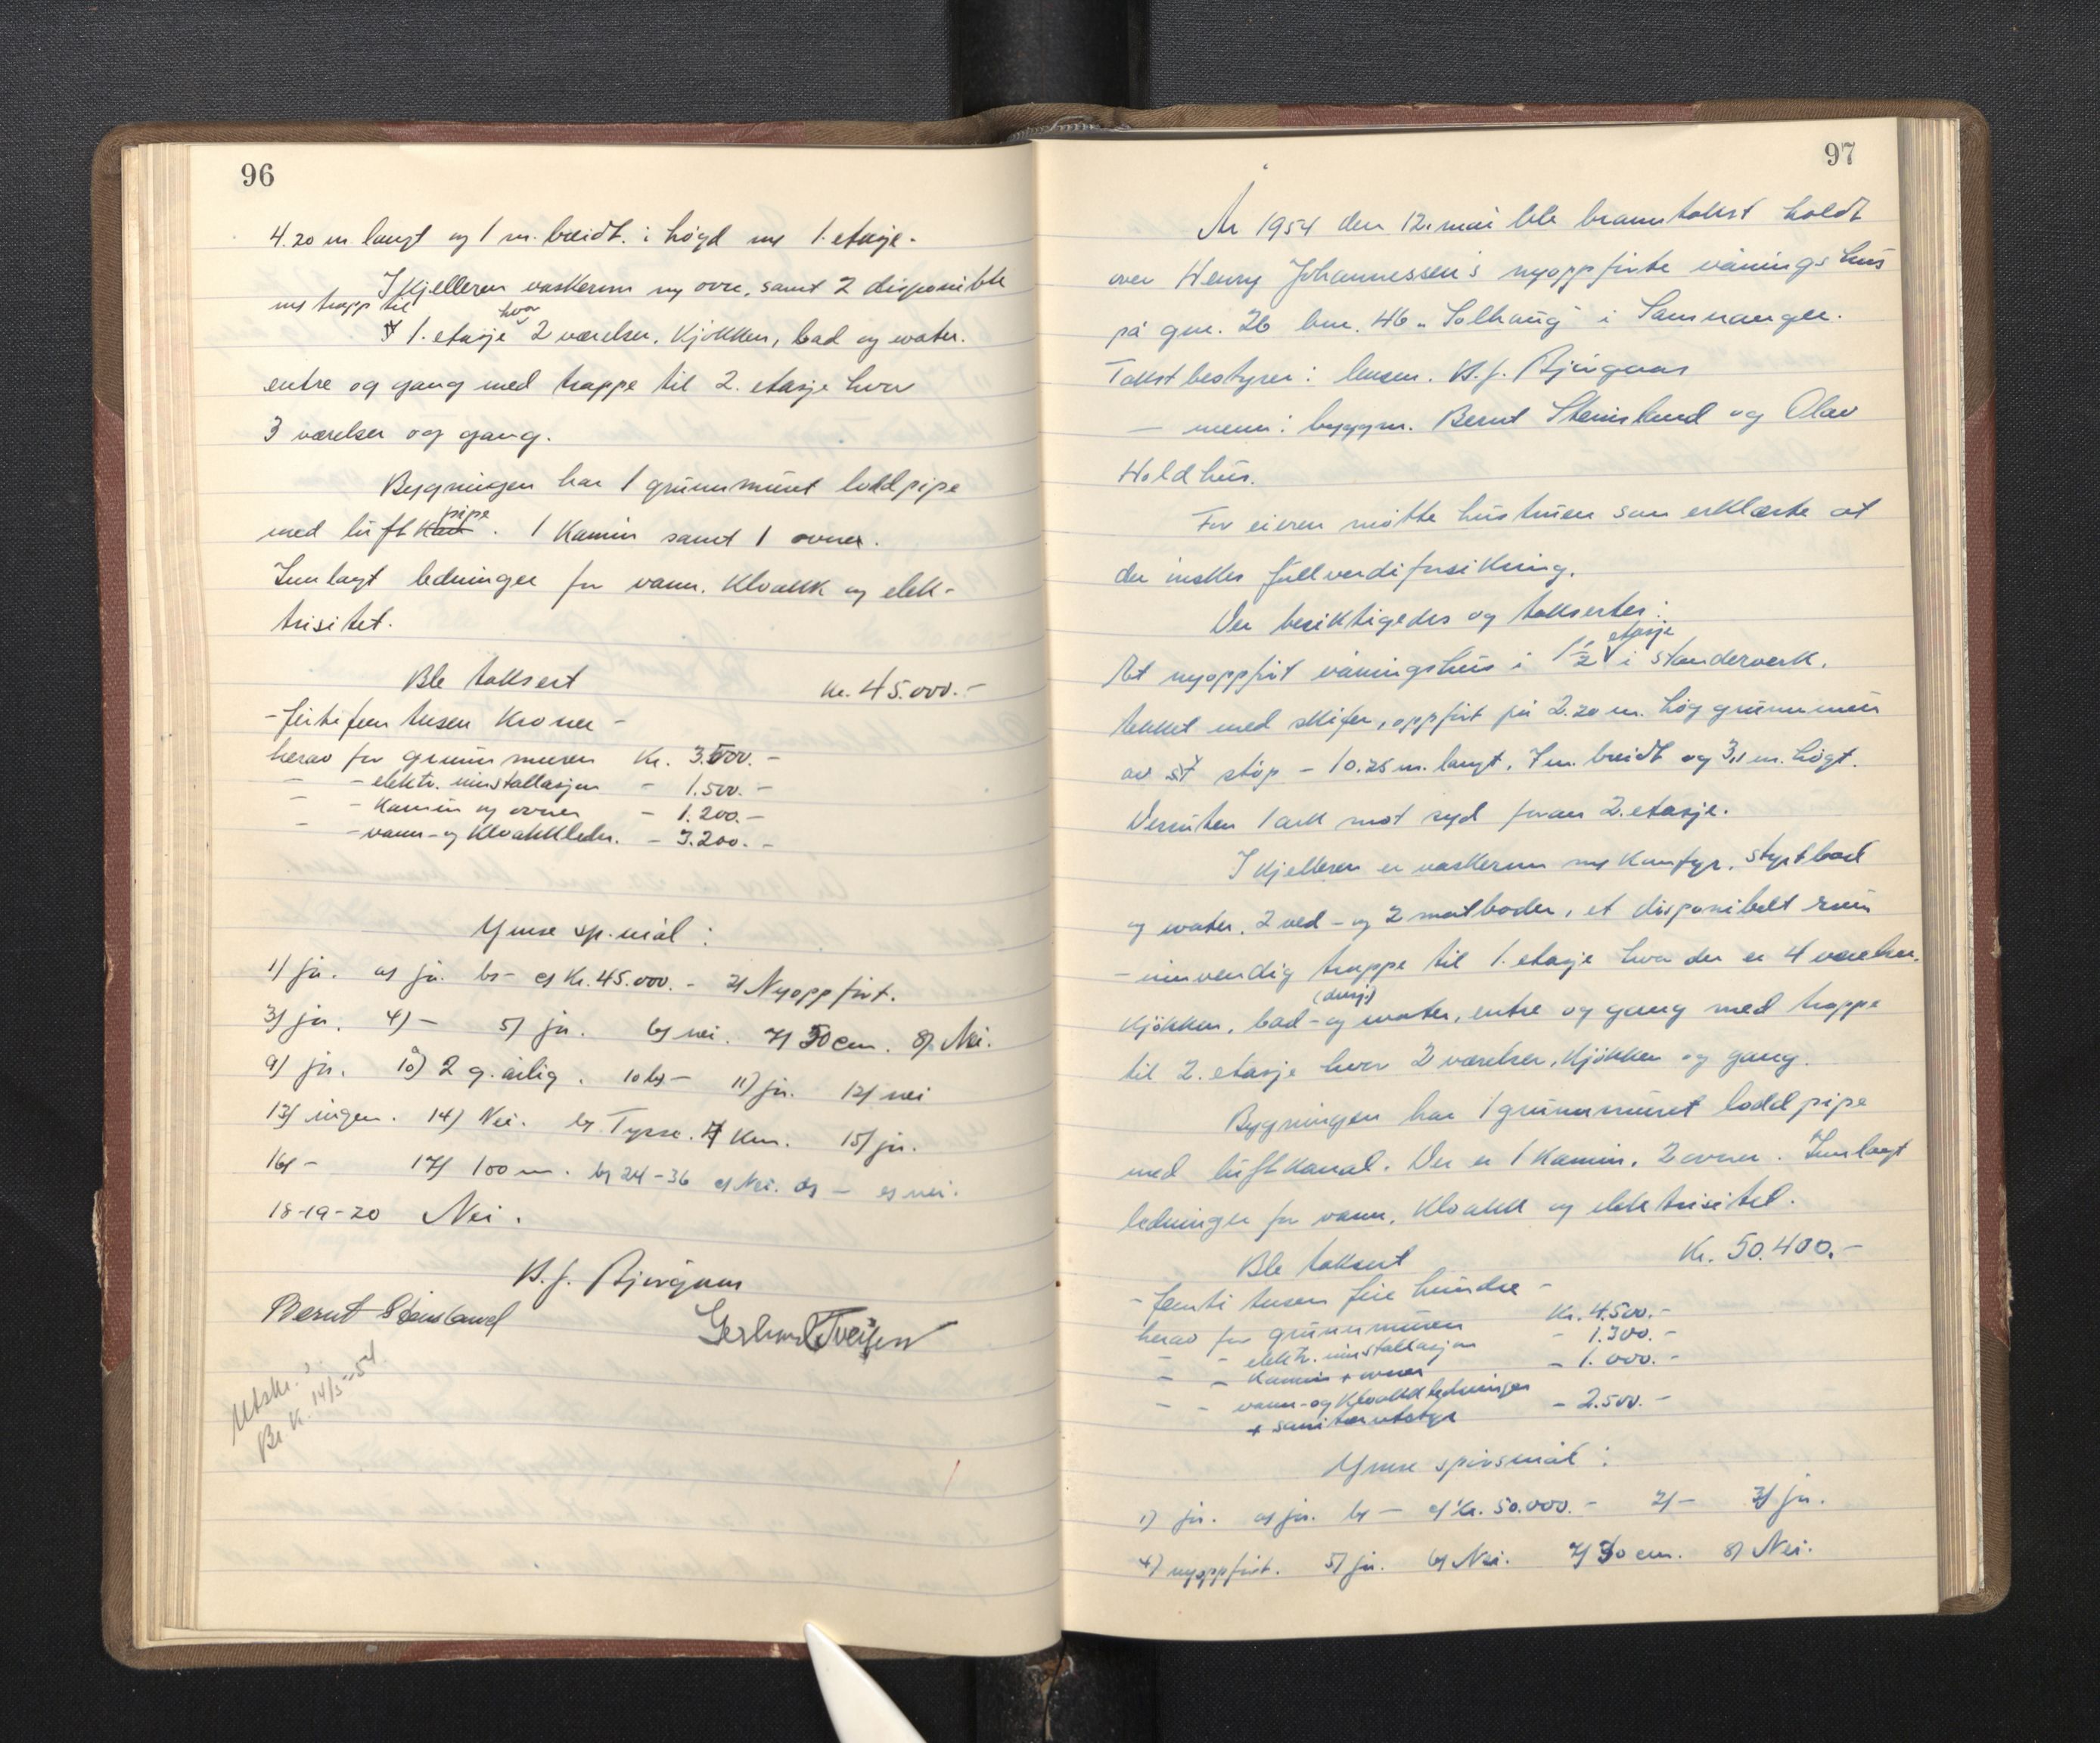 96
4.20 m langt og 1 m. breidt. i høgd m/ 1. etasje.
I kjelleren vaskerum m/ ovn, samt 2 disponible
m/ trapp til
1. etasje hvor 2 værelser, kjøkken, bad og water.
entre og gang med trappe til 2. etasje hvor
3 værelser og gang.
Bygningen har 1 grunnmuret loddpipe
med luftpipe. 1 Kamin samt 1 ovner.
Innlagt ledninger for vann, kloakk og elek-
trisitet.
Ble taksert kr. 45.000.-
- førtifem tusen kroner -
herav for grunnmuren kr. 3.500.-
- - elektr. innstallasjon - 1.500.-
- - Kamin og ovner - 1.200.-
- - vann- og kloakkledn. - 3.200.-
Ymse sp.mål:
1) ja. a) ja. b) - c) Kr. 45.000.- 2) Nyoppført.
3) ja. 4) - 5) ja. 6) nei. 7) 30 cm. 8) Nei.
9) ja. 10) 2 g. årlig. 10 b) - 11) ja. 12) nei
13) ingen. 14) Nei. b) Tysse. 4 km. 15) ja.
16) - 17) 100 m. b) 24-36 c) Nei. d) - e) nei.
18-19-20 Nei.
Bernt Steinsland
14/5-54
97
År 1954 den 12. mai ble branntakst holdt
over Henry Johannessen's nyoppførte våningshus
på gnr. 26 bnr. 46 "Solhaug" i Samnanger.
Takstbestyrer: lensm.
- menn: byggm. Bernt Steinsland og Olav
Holdhus.
For eieren møtte hustruen som erklærte at
der ønskes fullverdiforsikring.
Der besiktigedes og taksertes:
Et nyoppført våningshus i 1 1/2 etasje i standerverk,
tekket med skifer, oppført på 2.20 m. høg grunnmur
av støp - 10.25 m. langt, 7 m. breidt og 3,1 m. høgt.
Desuten 1 ark mot syd foran 2. etasje.
I kjelleren er vaskerum m/ komfyr, styrtbad
og water, 2 ved- og 2 matboder, et disponibelt rum
- innvendig trappe til 1. etasje hvor der er 4 værelser.
kjøkken, bad- (dusj) og water, entre og gang med trappe
til 2. etasje hvor 2 værelser, kjøkken og gang.
Bygningen har 1 grunnmuret loddpipe
med luftkanal. Der er 1 Kamin, 2 ovner. Innlagt
ledninger for vann, kloakk og elektrisitet.
Ble taksert Kr. 50.400.-
- femti tusen fire hundre -
herav for grunnmuren Kr. 4.500.-
- - elektr. innstallasjon - 1.300.-
- - Kamin + ovner - 1.000.-
- - vann- og kloakkledninger
+ sanitærutstyr - 2.500.-
Ymse spørsmål:
1) ja. a) ja. b) - c) Kr. 50.000.- 2) - 3) ja.
4) nyoppført. 5) ja. 6) Nei. 7) 30 cm. 8) Nei.